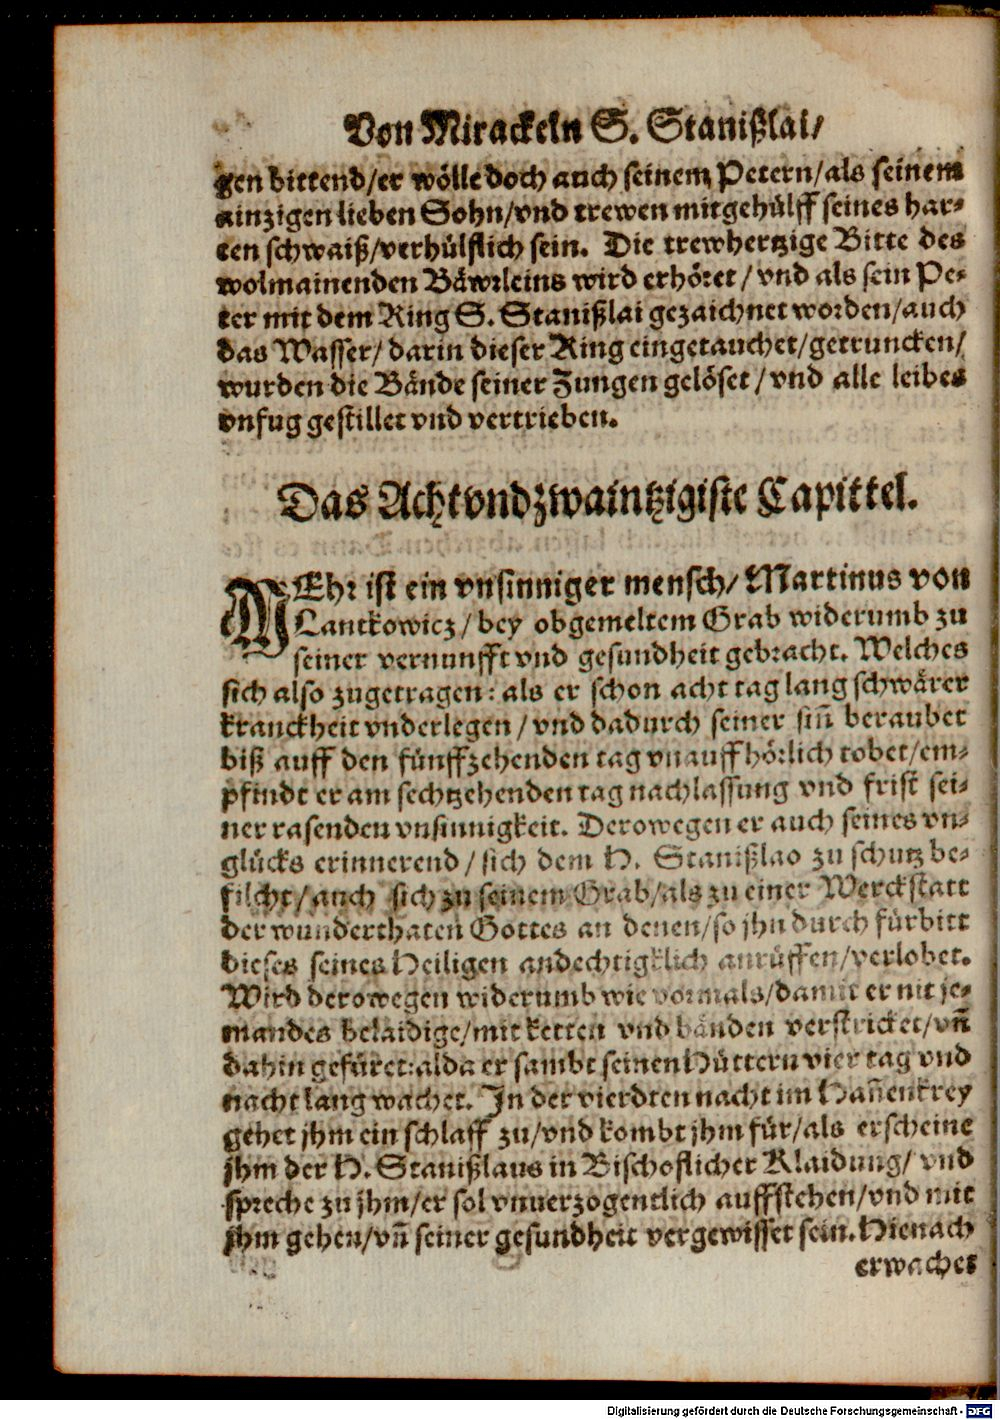 Von Mirackeln S. Stanißlai/
gen bittend/er wölle doch auch seinem Petern/als seinem
ainzigen lieben Sohn/vnd trewen mitgehülff seines har-
ten schwaiß/verhülflich sein. Die trewhertzige Bitte des
wolmainenden Bäwrleins wird erhöret/vnd als sein Pe-
ter mit dem Ring S. Stanißlai gezaichnet worden/auch
das Wasser/darin dieser Ring eingetauchet/getruncken/
wurden die Bände seiner Zungen gelöset/vnd alle leibes
vnfug gestillet vnd vertrieben.
Das Achtvndzwaintzigiste Capittel.
MEhr ist ein vnsinniger mensch/Martinus von
Lantkowicz/bey obgemeltem Grab widerumb zu
seiner vernunfft vnd gesundheit gebracht. Welches
sich also zugetragen: als er schon acht tag lang schwärer
kranckheit vnderlegen/vnd dadurch seiner siñ beraubet
biß auff den fünffzehenden tag vnauffhörlich tobet/em-
pfindt er am sechtzehenden tag nachlassung vnd frist sei-
ner rasenden vnsinnigkeit. Derowegen er auch seines vn-
glücks erinnerend/sich dem H. Stanißlao zu schutz be-
filcht/auch sich zu seinem Grab/als zu einer Werckstatt
der wunderthaten Gottes an denen/so jhn durch fürbitt
dieses seines Heiligen andechtigklich anrüffen/verlobet.
Wird derowegen widerumb wie vormals/damit er nit je-
mandes belaidige/mit ketten vnd bänden verstricket/vñ
dahin gefüret: alda er sambt seinen Hüttern vier tag vnd
nacht lang wachet. In der vierdten nacht im Hañenkrey
gehet jhm ein schlaff zu/vnd kombt jhm für/als erscheine
jhm der H. Stanißlaus in Bischoflicher Klaidung/vnd
spreche zu jhm/er sol vnuerzogentlich auffstehen/vnd mit
jhm gehen/vñ seiner gesundheit vergewisset sein. Hienach
erwachet
Digitalisierung gefördert durch die Deutsche Forschungsgemeinschaft - DFG